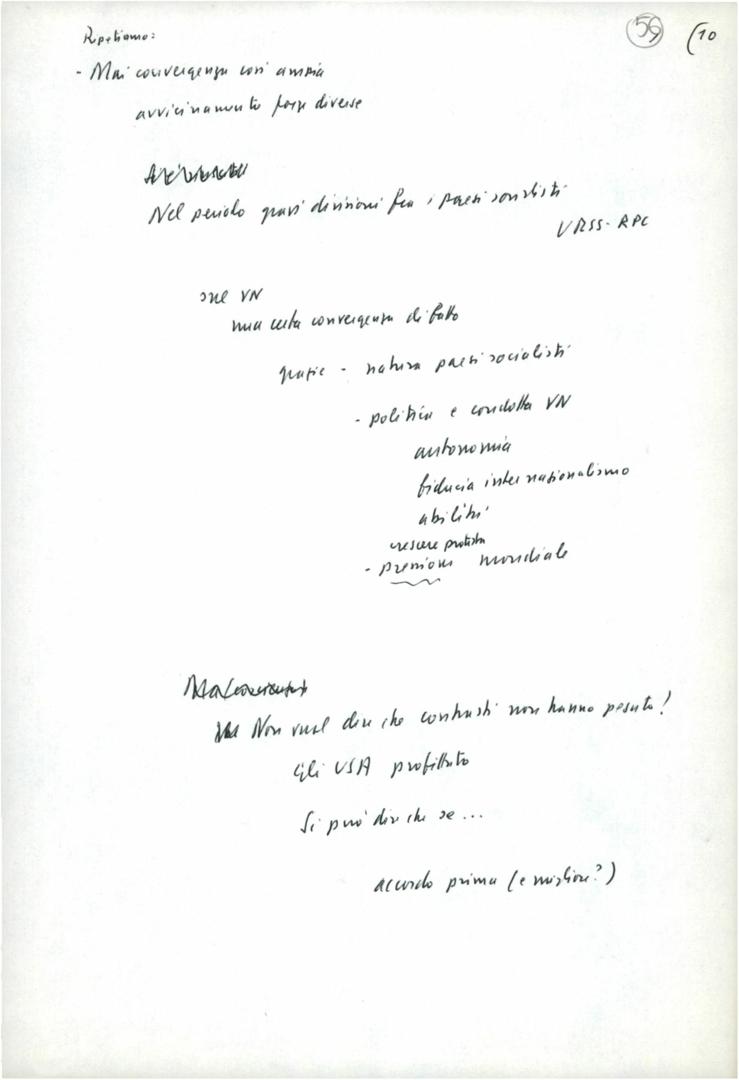 59 (10
Ripetiamo:
- Mai convergenza così ampia
avvicinamento forze diverse
Nel periodo gravi divisioni fra i paesi socialisti
URSS - RPC
sul VN
una certa convergenza di fatto
grazie - natura paesi socialisti
- politica e condotta VN
autonomia
fiducia internazionalismo
abilità
crescere protesta
- pressione mondiale
Non vuol dire che contrasti non hanno pesato!
Gli USA profittato
Si può dire che se...
accordo prima (e migliore?)